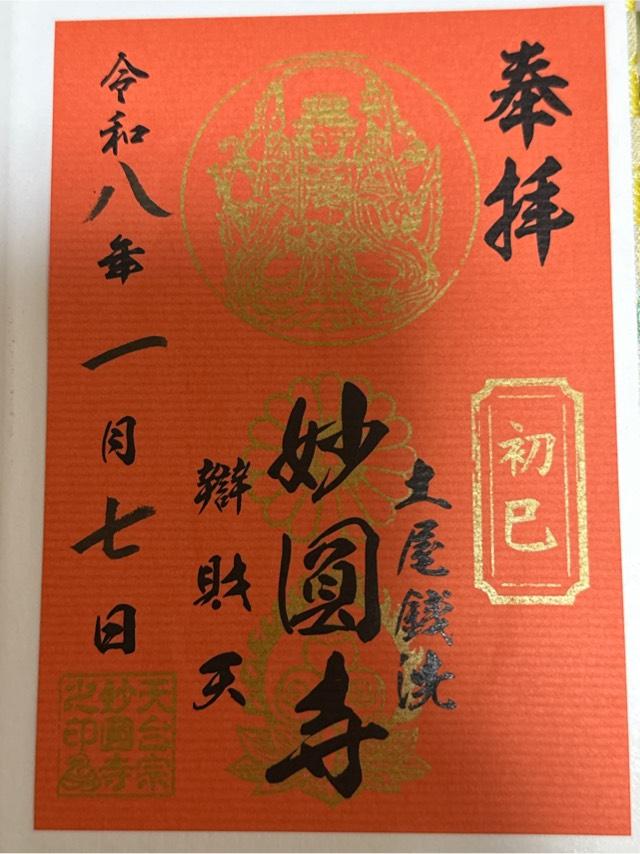 奉拝
初巳
土屋銭洗
妙圓寺
辯財天
令和八年一月七日
天台宗
妙圓寺
之印